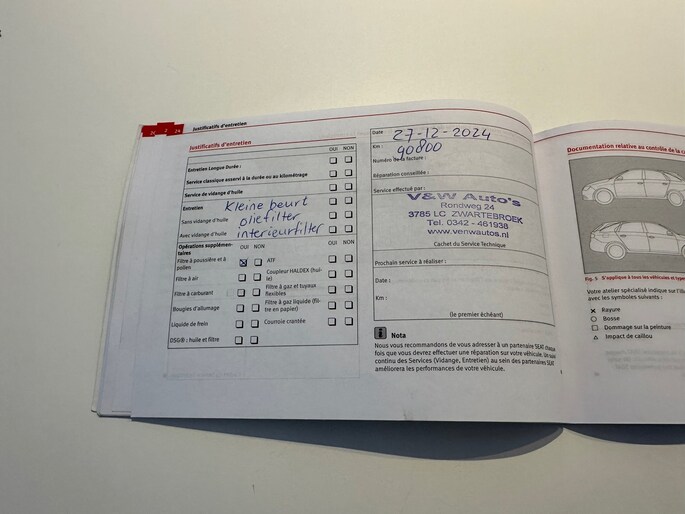 Justificatifs d'entretien
Justificatifs d'entretien
OUI NON
Entretien Longue Durée :
Service classique asservi à la durée ou au kilométrage
Service de vidange d'huile
Entretien
Sans vidange d'huile
Avec vidange d'huile
Kleine beurt
oliefilter
interieurfilter
Opérations supplémen-
taires
OUI NON
OUI NON
Filtre à poussière et à
pollen
ATF
Filtre à air
Coupleur HALDEX (hui-
le)
Filtre à carburant
Filtre à gaz et tuyaux
flexibles
Bougies d'allumage
Filtre à gaz liquide (fil-
tre en papier)
Liquide de frein
Courroie crantée
DSG® : huile et filtre
Date 27-12-2024
Km : 90800
Numéro de la facture :
Réparation conseillée :
Service effectué par :
V&W Auto's
Rondweg 24
3785 LC ZWARTEBROEK
Tel. 0342 - 461938
www.venwautos.nl
Cachet du Service Technique
Prochain service à réaliser :
Date :
Km :
(le premier échéant)
i Nota
Nous vous recommandons de vous adresser à un partenaire SEAT chaque
fois que vous devrez effectuer une réparation sur votre véhicule. Un suivi
continu des Services (Vidange, Entretien) au sein des partenaires SEAT
améliorera les performances de votre véhicule.
Documentation relative au contrôle de la
Fig. 5 S'applique à tous les véhicules et
Votre atelier spécialisé indique sur
avec les symboles suivants :
Rayure
Bosse
Dommage sur la peinture
Impact de caillou